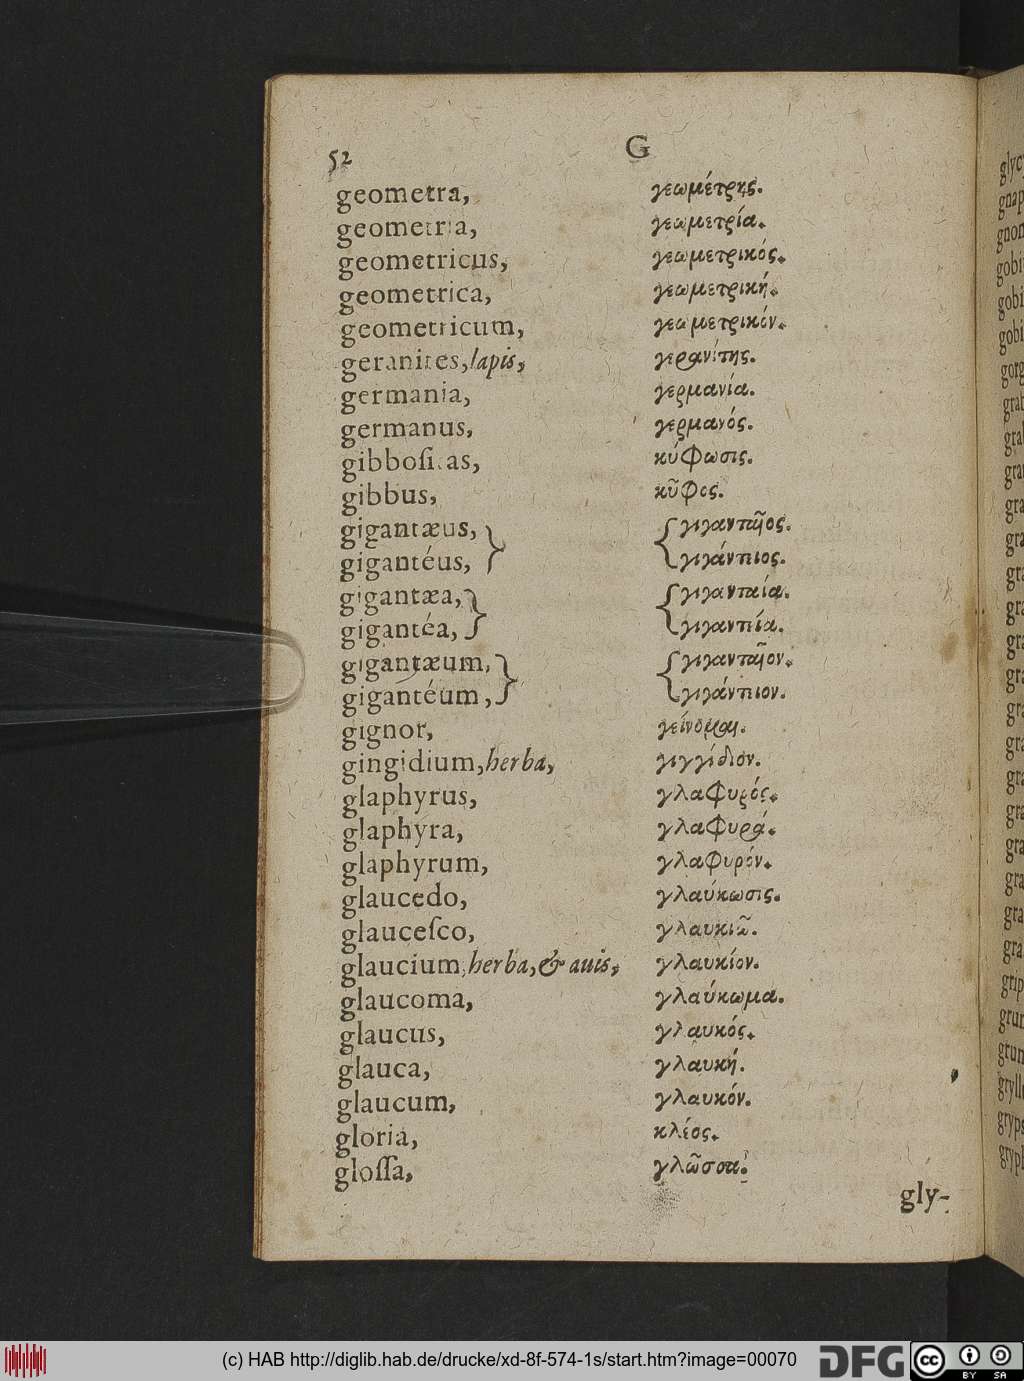 52 G
geometra, γεωμέτρης.
geometria, γεωμετρία.
geometricus, γεωμετρικός.
geometrica, γεωμετρική.
geometricum, γεωμετρικόν.
geranites, lapis, γερανίτης.
germania, γερμανία.
germanus, γερμανός.
gibboſitas, κύφωσις.
gibbus, κῦφος.
gigantæus, γιγανταῖος.
gigantéus, γιγάντειος.
gigantæa, γιγανταία.
gigantéa, γιγαντεία.
gigantæum, γιγανταῖον.
gigantéum, γιγάντειον.
gignor, γείνομαι.
gingidium, herba, γιγγίδιον.
glaphyrus, γλαφυρός.
glaphyra, γλαφυρά.
glaphyrum, γλαφυρόν.
glaucedo, γλαύκωσις.
glauceſco, γλαυκιῶ.
glaucium, herba, & auis, γλαυκίον.
glaucoma, γλαύκωμα.
glaucus, γλαυκός.
glauca, γλαυκή.
glaucum, γλαυκόν.
gloria, κλέος.
gloſſa, γλῶσσα.
gly-
(c) HAB http://diglib.hab.de/drucke/xd-8f-574-1s/start.htm?image=00070 DFG cc BY SA